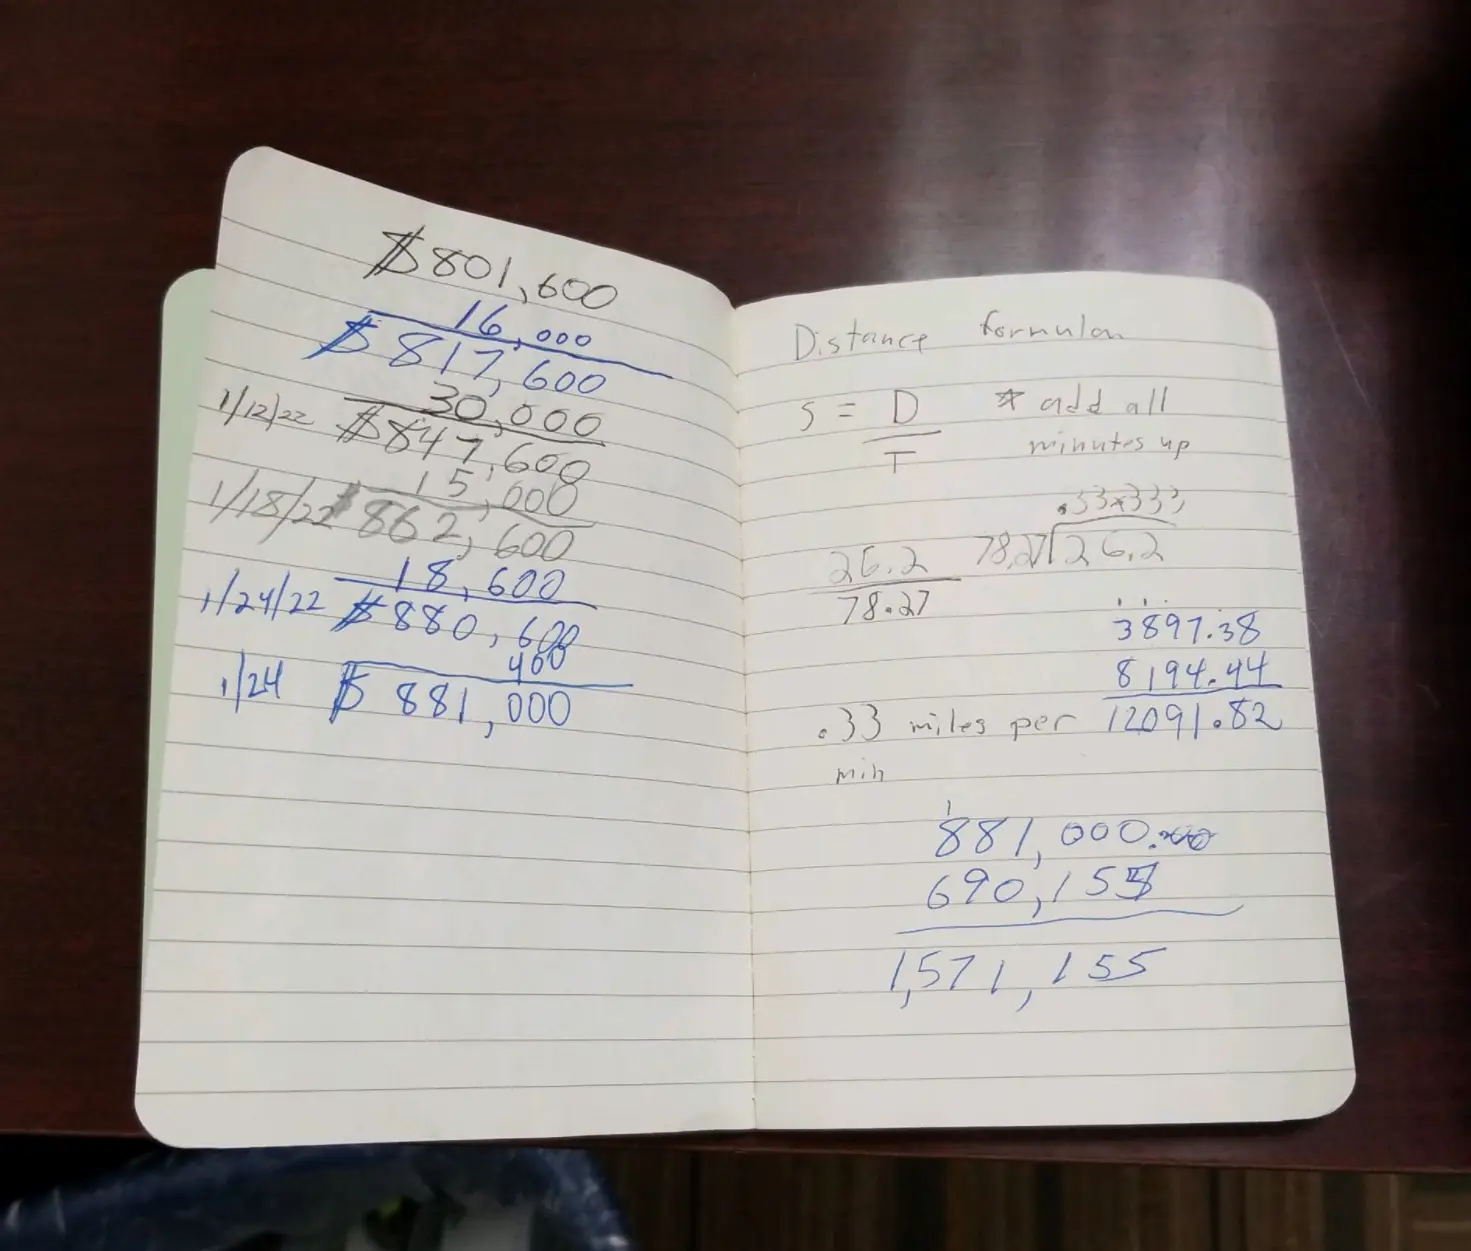 $801,600
16,000
$817,600
30,000
1/12/22 $847,600
15,000
1/18/22 $862,600
18,600
1/24/22 $880,600
400
1/24 $881,000
Distance formulan
S = D
T
* add all
minutes up
26.2
78.27
78.27 26.2
3897.38
8194.44
12091.82
.33 miles per
min
1
881,000.
690,155
1,571,155